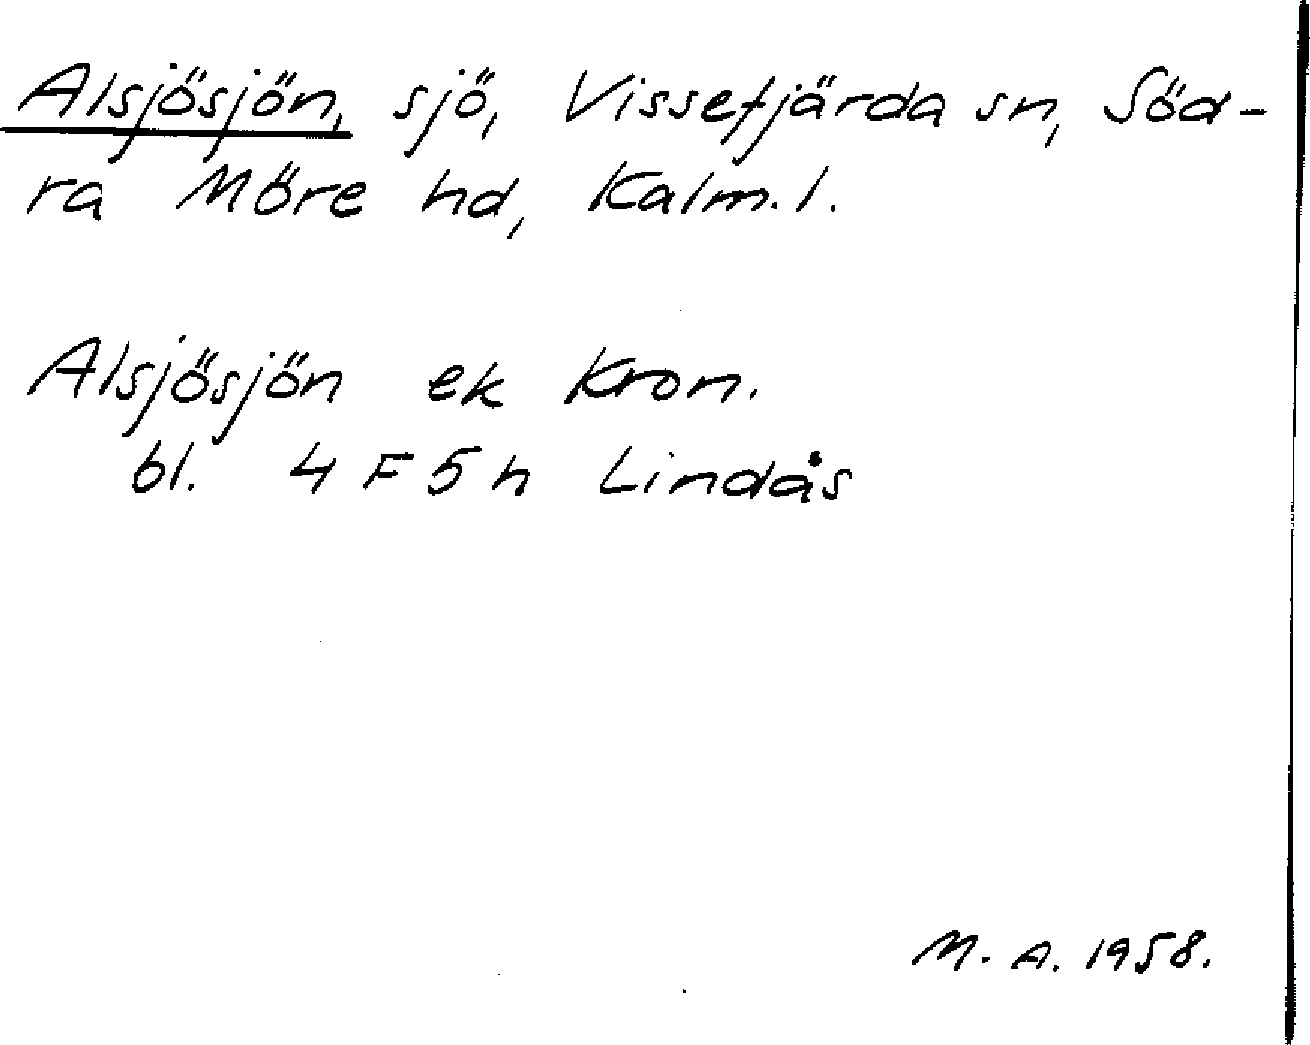 Alsjösjön, sjö, Vissefjärda sn, Söd-
ra Möre hd, Kalm. l.
Alsjösjön ek Kron.
bl. 4 F 5 h Lindås
M. A. 1958.